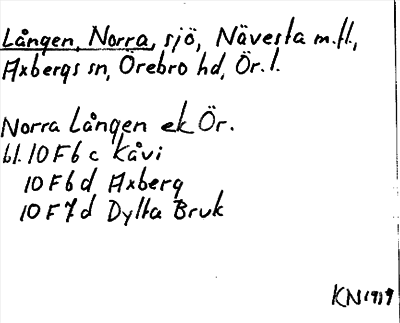 Lången, Norra, sjö, Nävesta m.fl.,
Axbergs sn, Örebro hd, Ör. l.
Norra Lången ek Ör.
bl. 10 F 6 c Kåvi
10 F 6 d Axberg
10 F 7 d Dylta Bruk
KN 1979